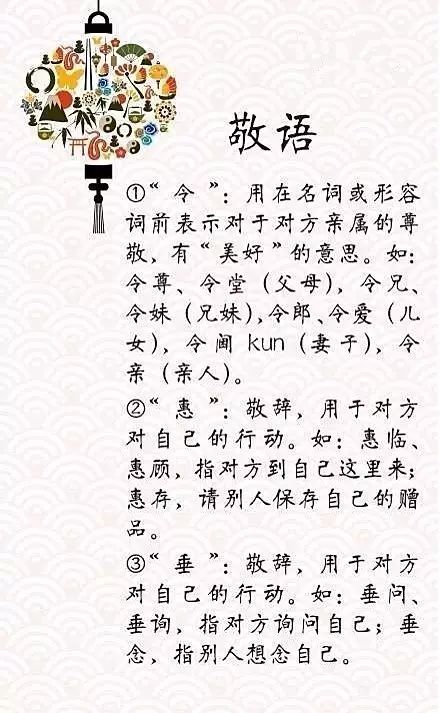 敬语
①“令”：用在名词或形容
词前表示对于对方亲属的尊
敬，有“美好”的意思。如：
令尊、令堂（父母），令兄、
令妹（兄妹），令郎、令爱（儿
女），令阃 kun（妻子），令
亲（亲人）。
②“惠”：敬辞，用于对方
对自己的行动。如：惠临、
惠顾，指对方到自己这里来；
惠存，请别人保存自己的赠
品。
③“垂”：敬辞，用于对方
对自己的行动。如：垂问、
垂询，指对方询问自己；垂
念，指别人想念自己。